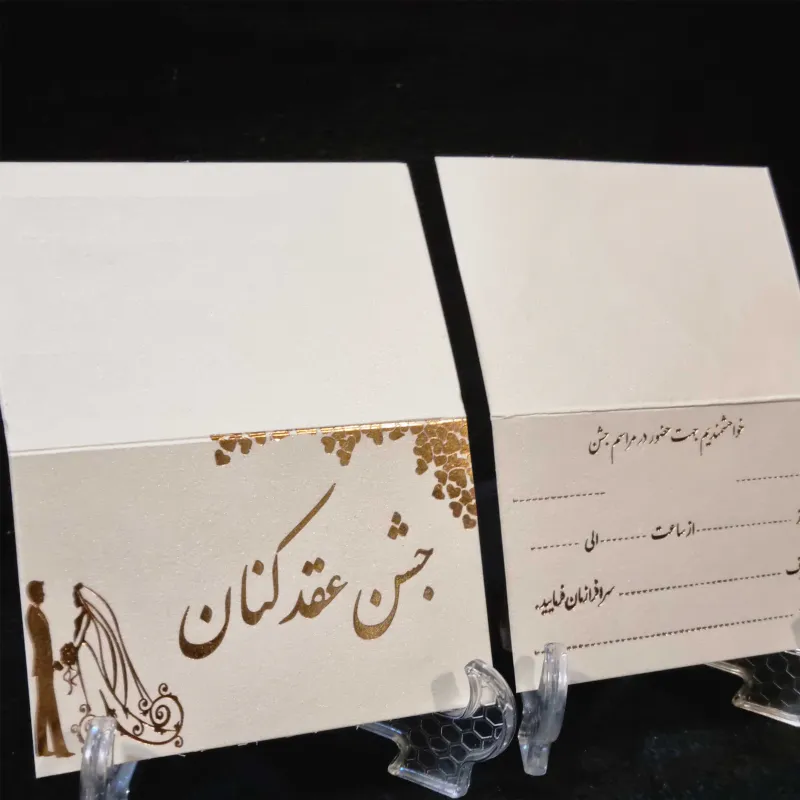 جشن عقد کنان
خواهشمندیم جهت حضور در مراسم جشن
از ساعت الی
سرافرازمان فرمایید.